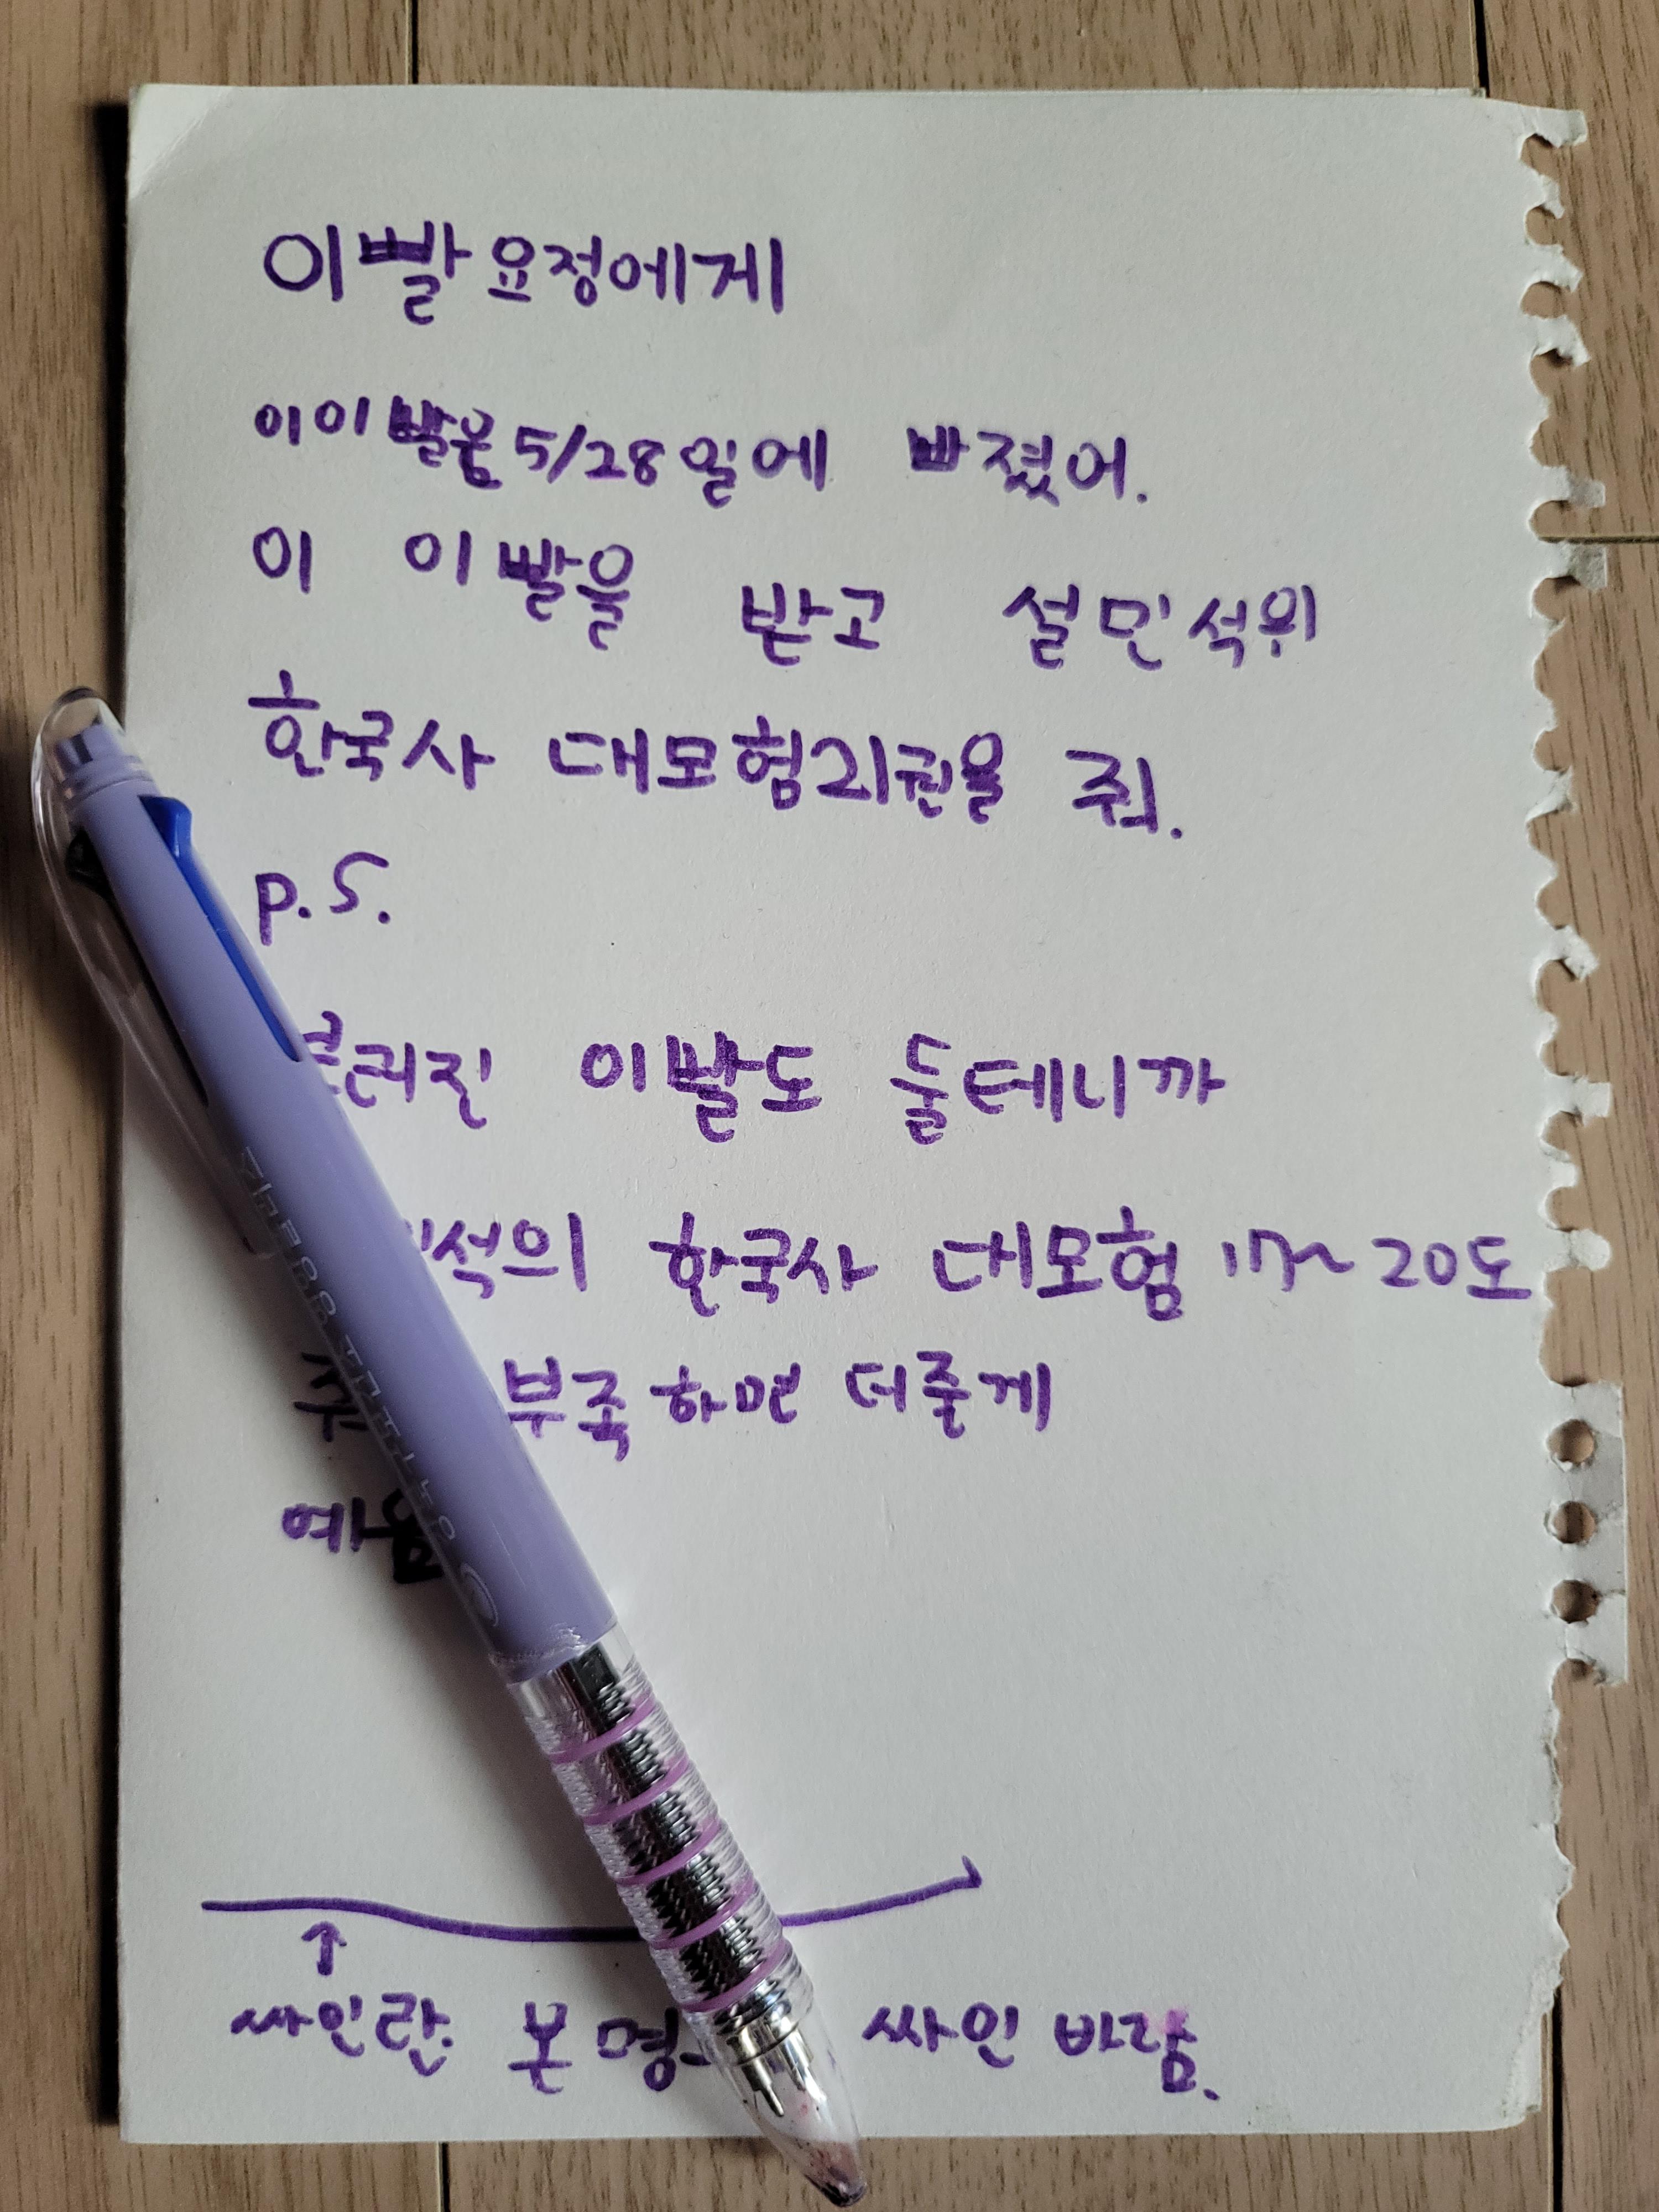 이빨요정에게
이이빨은 5/28일에 빠졌어.
이 이빨을 받고 설민석위
한국사 대모험21권을 줘.
p.s.
이빨도 둘테니까
한국사 대모험 17~20도
부족하면 더줄게
싸인란. 싸인 바람.